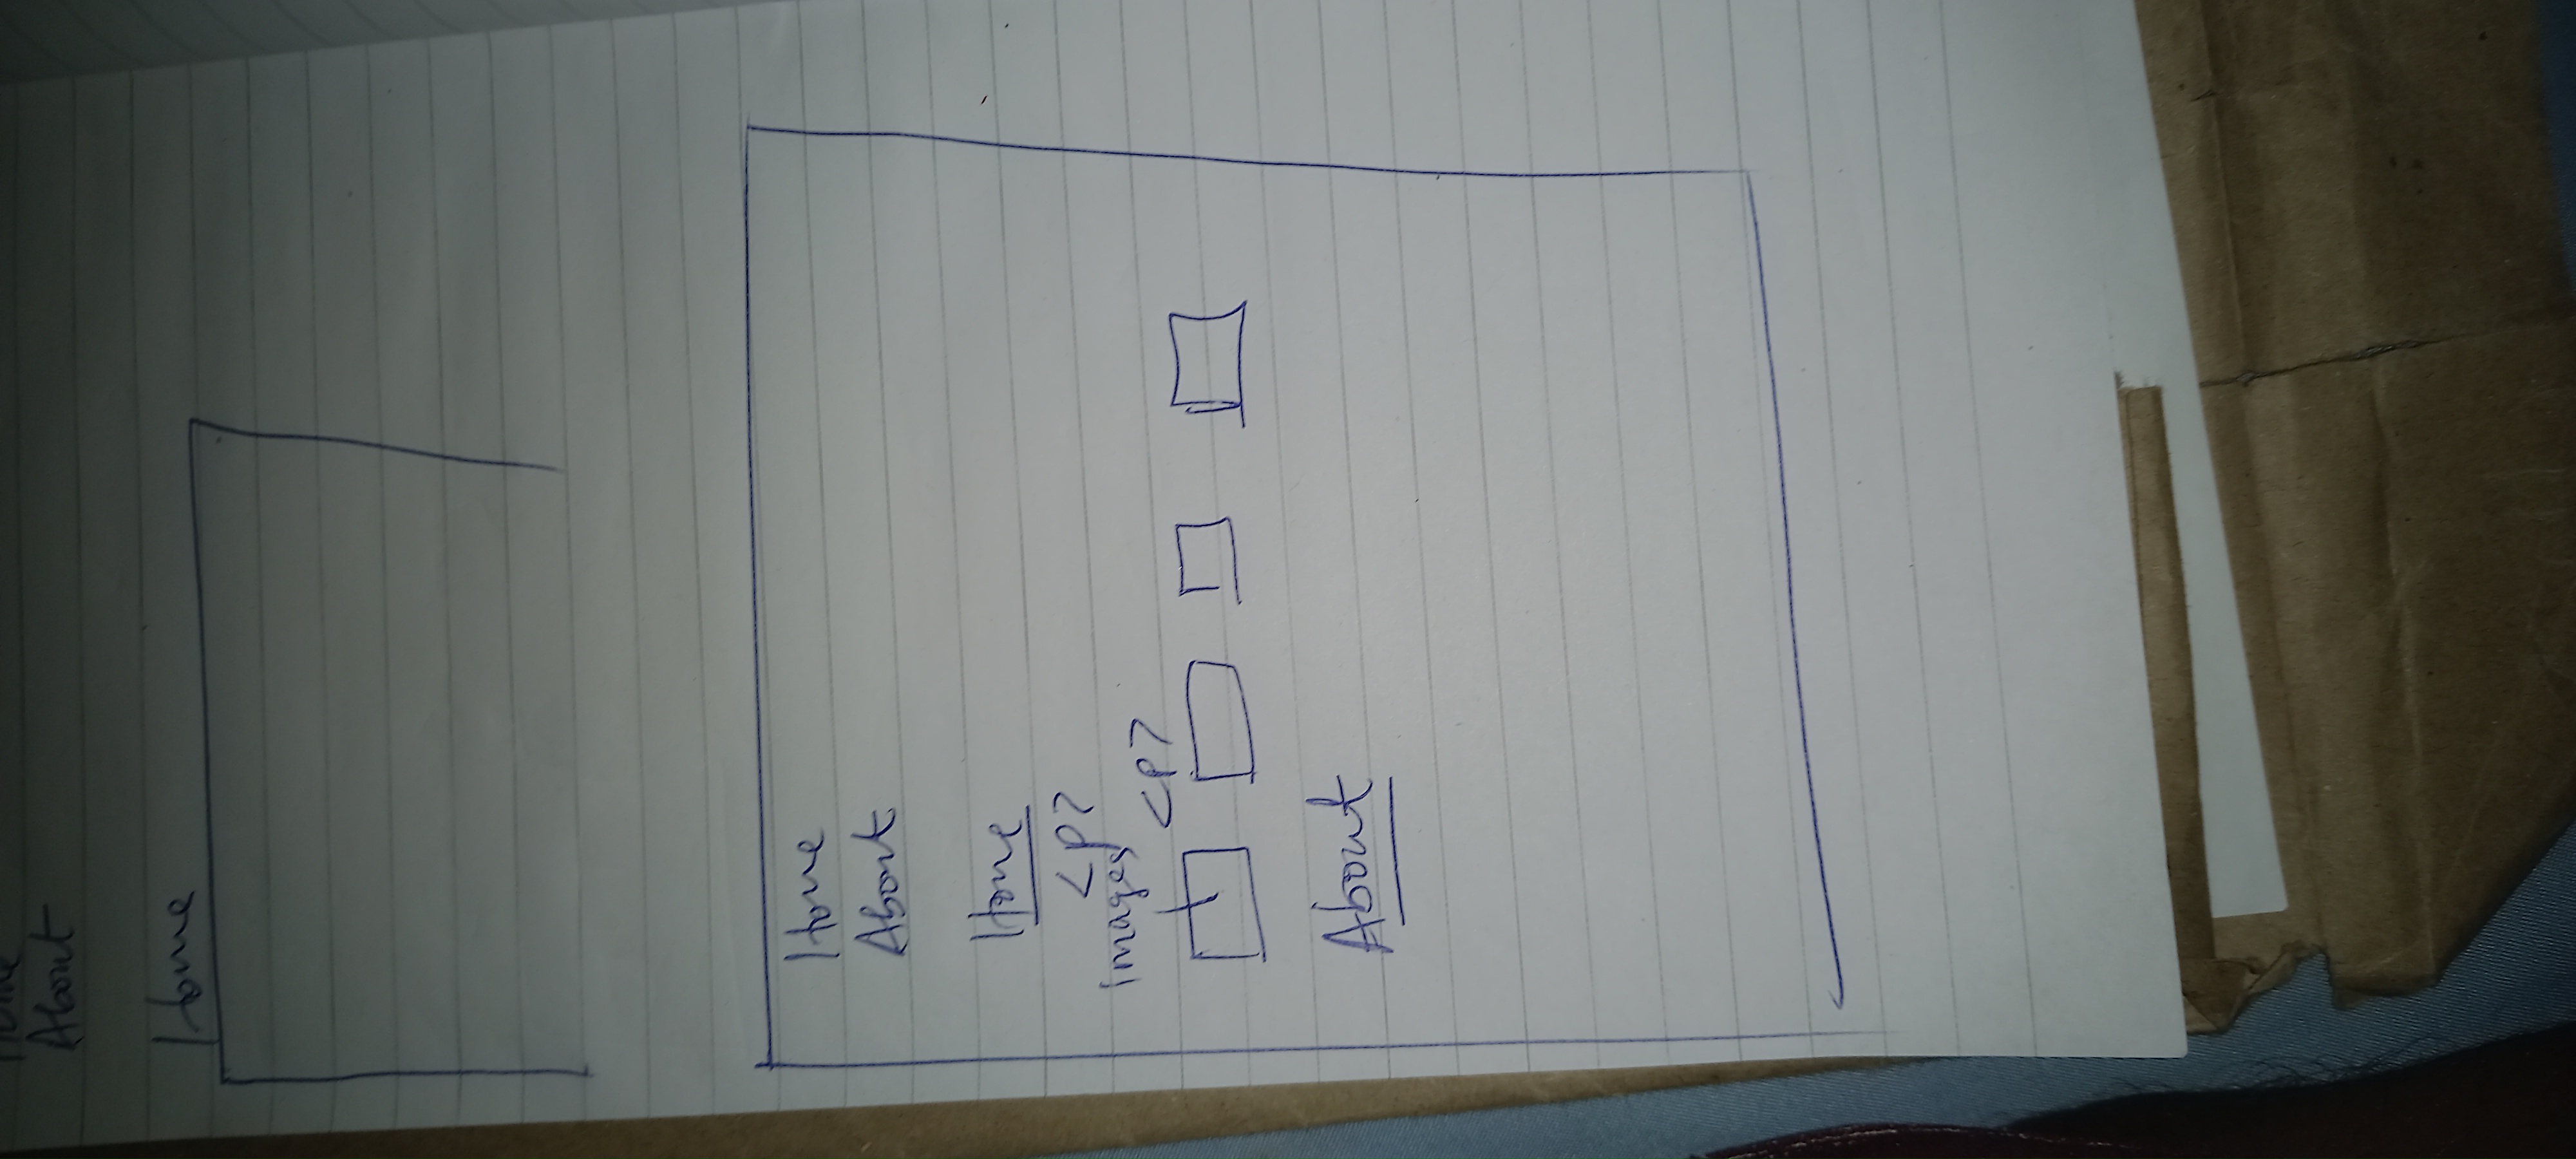 Home
About
Home
Home
About
Home
<p>
images
<p>
About